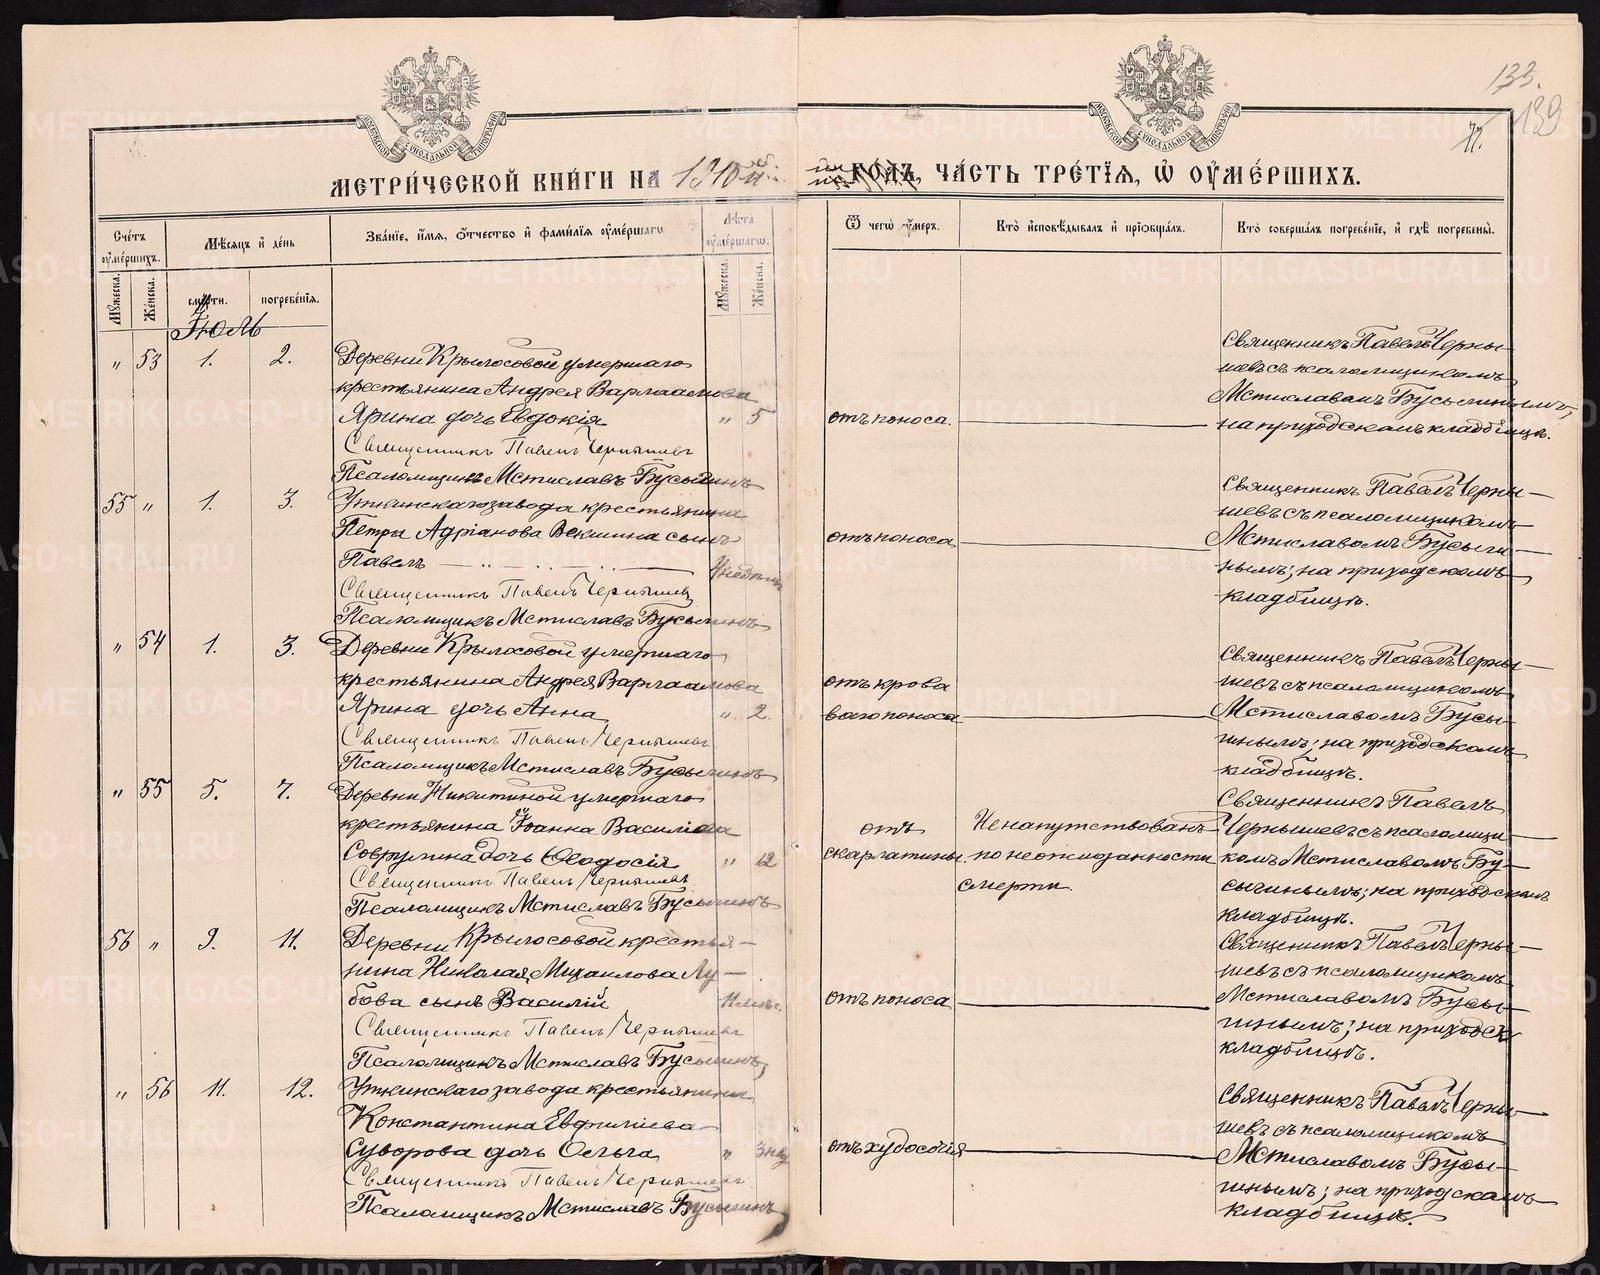 133.
139
77.
МЕТРИ́ЧЕСКОЙ КНИ́ГИ НА 1910й ГО́ДЪ, ЧА́СТЬ ТРЕ́ТІѦ, Ѡ ОУМЕ́РШИХЪ.
Сче́тъ оумершихъ.
Мѣсѧцъ и де́нь
Зва́ніе, и҆́мѧ, ѻ҆́тчество и фами́лїѧ оуме́ршагѡ
Лѣта оуме́ршагѡ.
Ѿ чегѡ̀ оу҆́меръ.
Кто̀ и҆сповѣ́дывалъ и прїѡбща́лъ.
Кто̀ соверша́лъ погребе́нїе, и гдѣ̀ погребены̀.
Мꙋ́жеска.
Же́нска.
сме́рти.
погребе́нїѧ.
Мꙋ́жеска.
Же́нска.
Іюль
" 53 1. 2.
Деревни Крылосовой умершаго
крестьянина Андрея Варлаамова
Ярина дочь Евдокія " 5
Священникъ Павелъ Чернышевъ
Псаломщикъ Мстиславъ Бусыгинъ
отъ поноса.
Священникъ Павелъ Черны-
шевъ съ псаломщикомъ
Мстиславомъ Бусыгинымъ,
на приходскомъ кладбищѣ.
55 " 1. 3.
Уткинскаго завода крестьянина
Петра Адріанова Векшина сынъ
Павелъ
Священникъ Павелъ Чернышевъ
Псаломщикъ Мстиславъ Бусыгинъ
отъ поноса
Священникъ Павелъ Черны-
шевъ съ псаломщикомъ
Мстиславомъ Бусыги-
нымъ; на приходскомъ
кладбищѣ.
" 54 1. 3.
Деревни Крылосовой умершаго
крестьянина Андрея Варлаамова
Ярина дочь Анна " 2.
Священникъ Павелъ Чернышевъ
Псаломщикъ Мстиславъ Бусыгинъ
отъ крова
ваго поноса
Священникъ Павелъ Черны-
шевъ съ псаломщикомъ
Мстиславомъ Бусы-
гинымъ; на приходскомъ
кладбищѣ.
" 55 5. 7.
Деревни Никитиной умершаго
крестьянина Іоанна Василіева
Соврулина дочь Ѳеодосія " 12
Священникъ Павелъ Чернышевъ
Псаломщикъ Мстиславъ Бусыгинъ
отъ
скарлатины
Ненапутствованъ
по неожиданности
смерти.
Священникъ Павелъ
Чернышевъ съ псаломщи-
комъ Мстиславомъ Бу-
сыгинымъ; на приходскомъ
кладбищѣ.
56 " 9. 11.
Деревни Крылосовой крестья-
нина Николая Михаилова Лу-
бова сынъ Василій 11 мѣс.
Священникъ Павелъ Чернышевъ
Псаломщикъ Мстиславъ Бусыгинъ
отъ поноса
Священникъ Павелъ Черны-
шевъ съ псаломщикомъ
Мстиславомъ Бусы-
гинымъ; на приходск
кладбищѣ.
" 56 11. 12.
Уткинскаго завода крестьянина
Константина Евфиміева
Суворова дочь Ольга "
Священникъ Павелъ Чернышевъ
Псаломщикъ Мстиславъ Бусыгинъ
отъ худосочія
Священникъ Павелъ Черны-
шевъ съ псаломщикомъ
Мстиславомъ Бусы-
гинымъ; на приходскомъ
кладбищѣ.